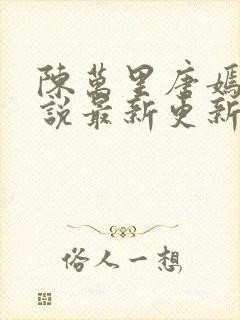 陳萬里唐嫣
說最新更新
俗人一想